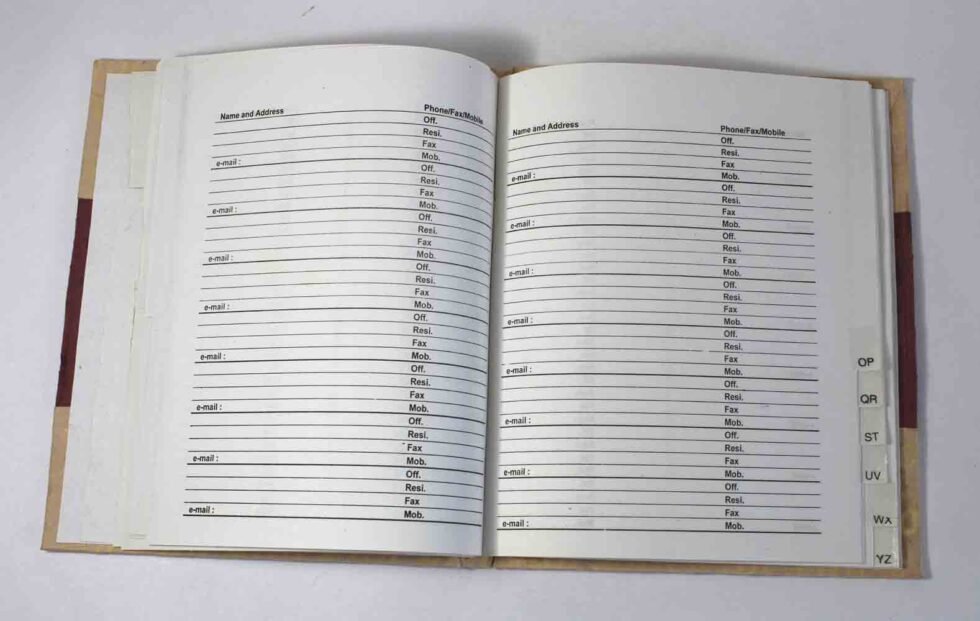 Name and Address Phone/Fax/Mobile
Off.
Resi.
Fax
e-mail : Mob.
Off.
Resi.
Fax
e-mail : Mob.
Off.
Resi.
Fax
e-mail : Mob.
Off.
Resi.
Fax
e-mail : Mob.
Off.
Resi.
Fax
e-mail : Mob.
Off.
Resi.
Fax
e-mail : Mob.
Off.
Resi.
Fax
e-mail : Mob.
Off.
Resi.
Fax
e-mail : Mob.
Name and Address Phone/Fax/Mobile
Off.
Resi.
Fax
e-mail : Mob.
Off.
Resi.
Fax
e-mail : Mob.
Off.
Resi.
Fax
e-mail : Mob.
Off.
Resi.
Fax
e-mail : Mob.
Off.
Resi.
Fax
e-mail : Mob.
Off.
Resi.
Fax
e-mail : Mob.
Off.
Resi.
Fax
e-mail : Mob.
Off.
Resi.
Fax
e-mail : Mob.
OP
QR
ST
UV
WX
YZ